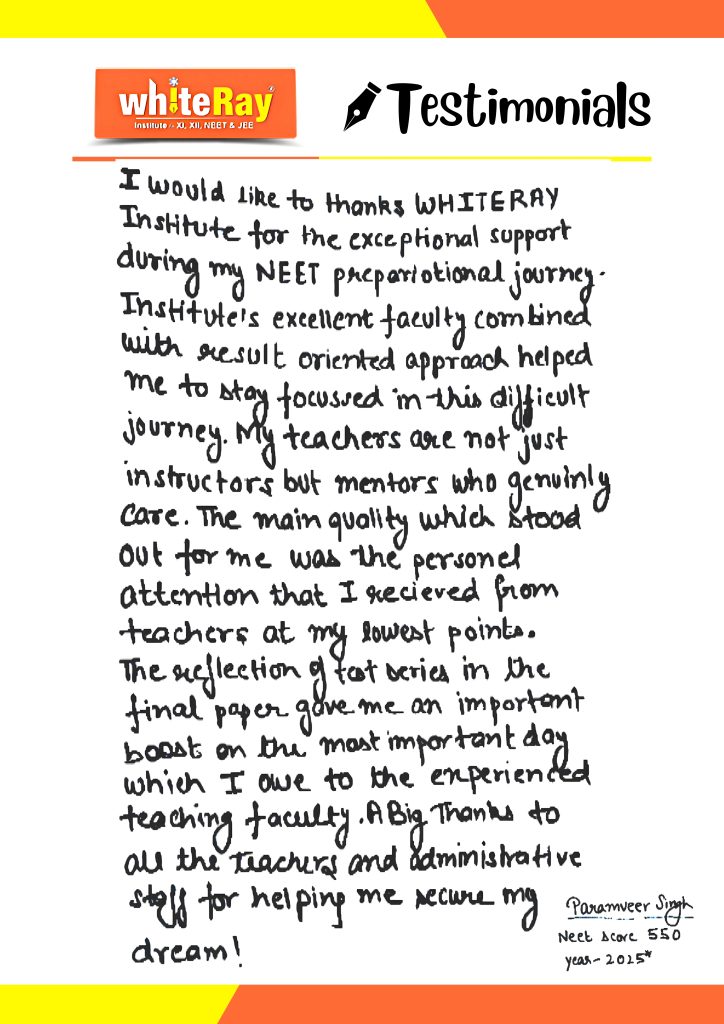 whiteRay
Institute :- XI, XII, NEET & JEE
Testimonials
I would like to thanks WHITERAY
Institute for the exceptional support
during my NEET prepariotional journey.
Institute's excellent faculty combined
with result oriented approach helped
me to stay focussed in this difficult
journey. My teachers are not just
instructors but mentors who genuinly
care. The main quality which stood
out for me was the personel
attention that I recieved from
teachers at my lowest points.
The reflection of test series in the
final paper gave me an important
boost on the most important day
which I owe to the experienced
teaching faculty. A Big Thanks to
all the teachers and administrative
staff for helping me secure my
dream!
Paramveer Singh
Neet score 550
year-2025*